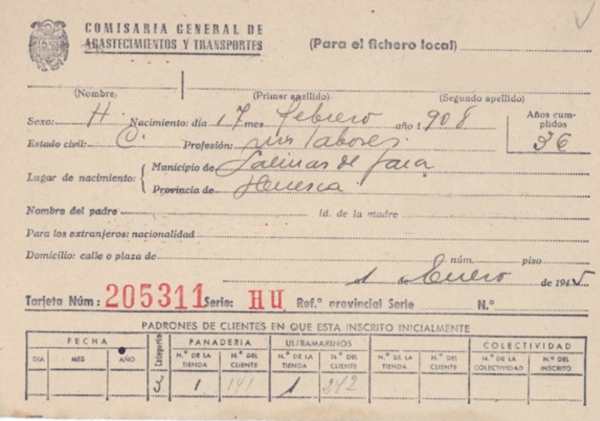 COMISARIA GENERAL DE
ABASTECIMIENTOS Y TRANSPORTES
(Para el fichero local)
(Nombre) (Primer apellido) (Segundo apellido)
Sexo: H. Nacimiento: día 17 mes febrero año 1908
Años cumplidos 36
Estado civil: C. Profesión: sus labores
Lugar de nacimiento: Municipio de Salinas de Jaca
Provincia de Huesca
Nombre del padre Id. de la madre
Para los extranjeros: nacionalidad
Domicilio: calle o plaza de núm. piso
1 Enero de 1945
Tarjeta Núm: 205311 Serie: HU Ref.ª provincial Serie N.º
PADRONES DE CLIENTES EN QUE ESTA INSCRITO INICIALMENTE
FECHA Categoría PANADERIA ULTRAMARINOS COLECTIVIDAD
DIA MES AÑO N.º DE LA TIENDA N.º DEL CLIENTE N.º DE LA TIENDA N.º DEL CLIENTE N.º DE LA TIENDA N.º DEL CLIENTE N.º DE LA TIENDA N.º DEL CLIENTE N.º DE LA COLECTIVIDAD N.º DEL INSCRITO
3 1 141 1 242